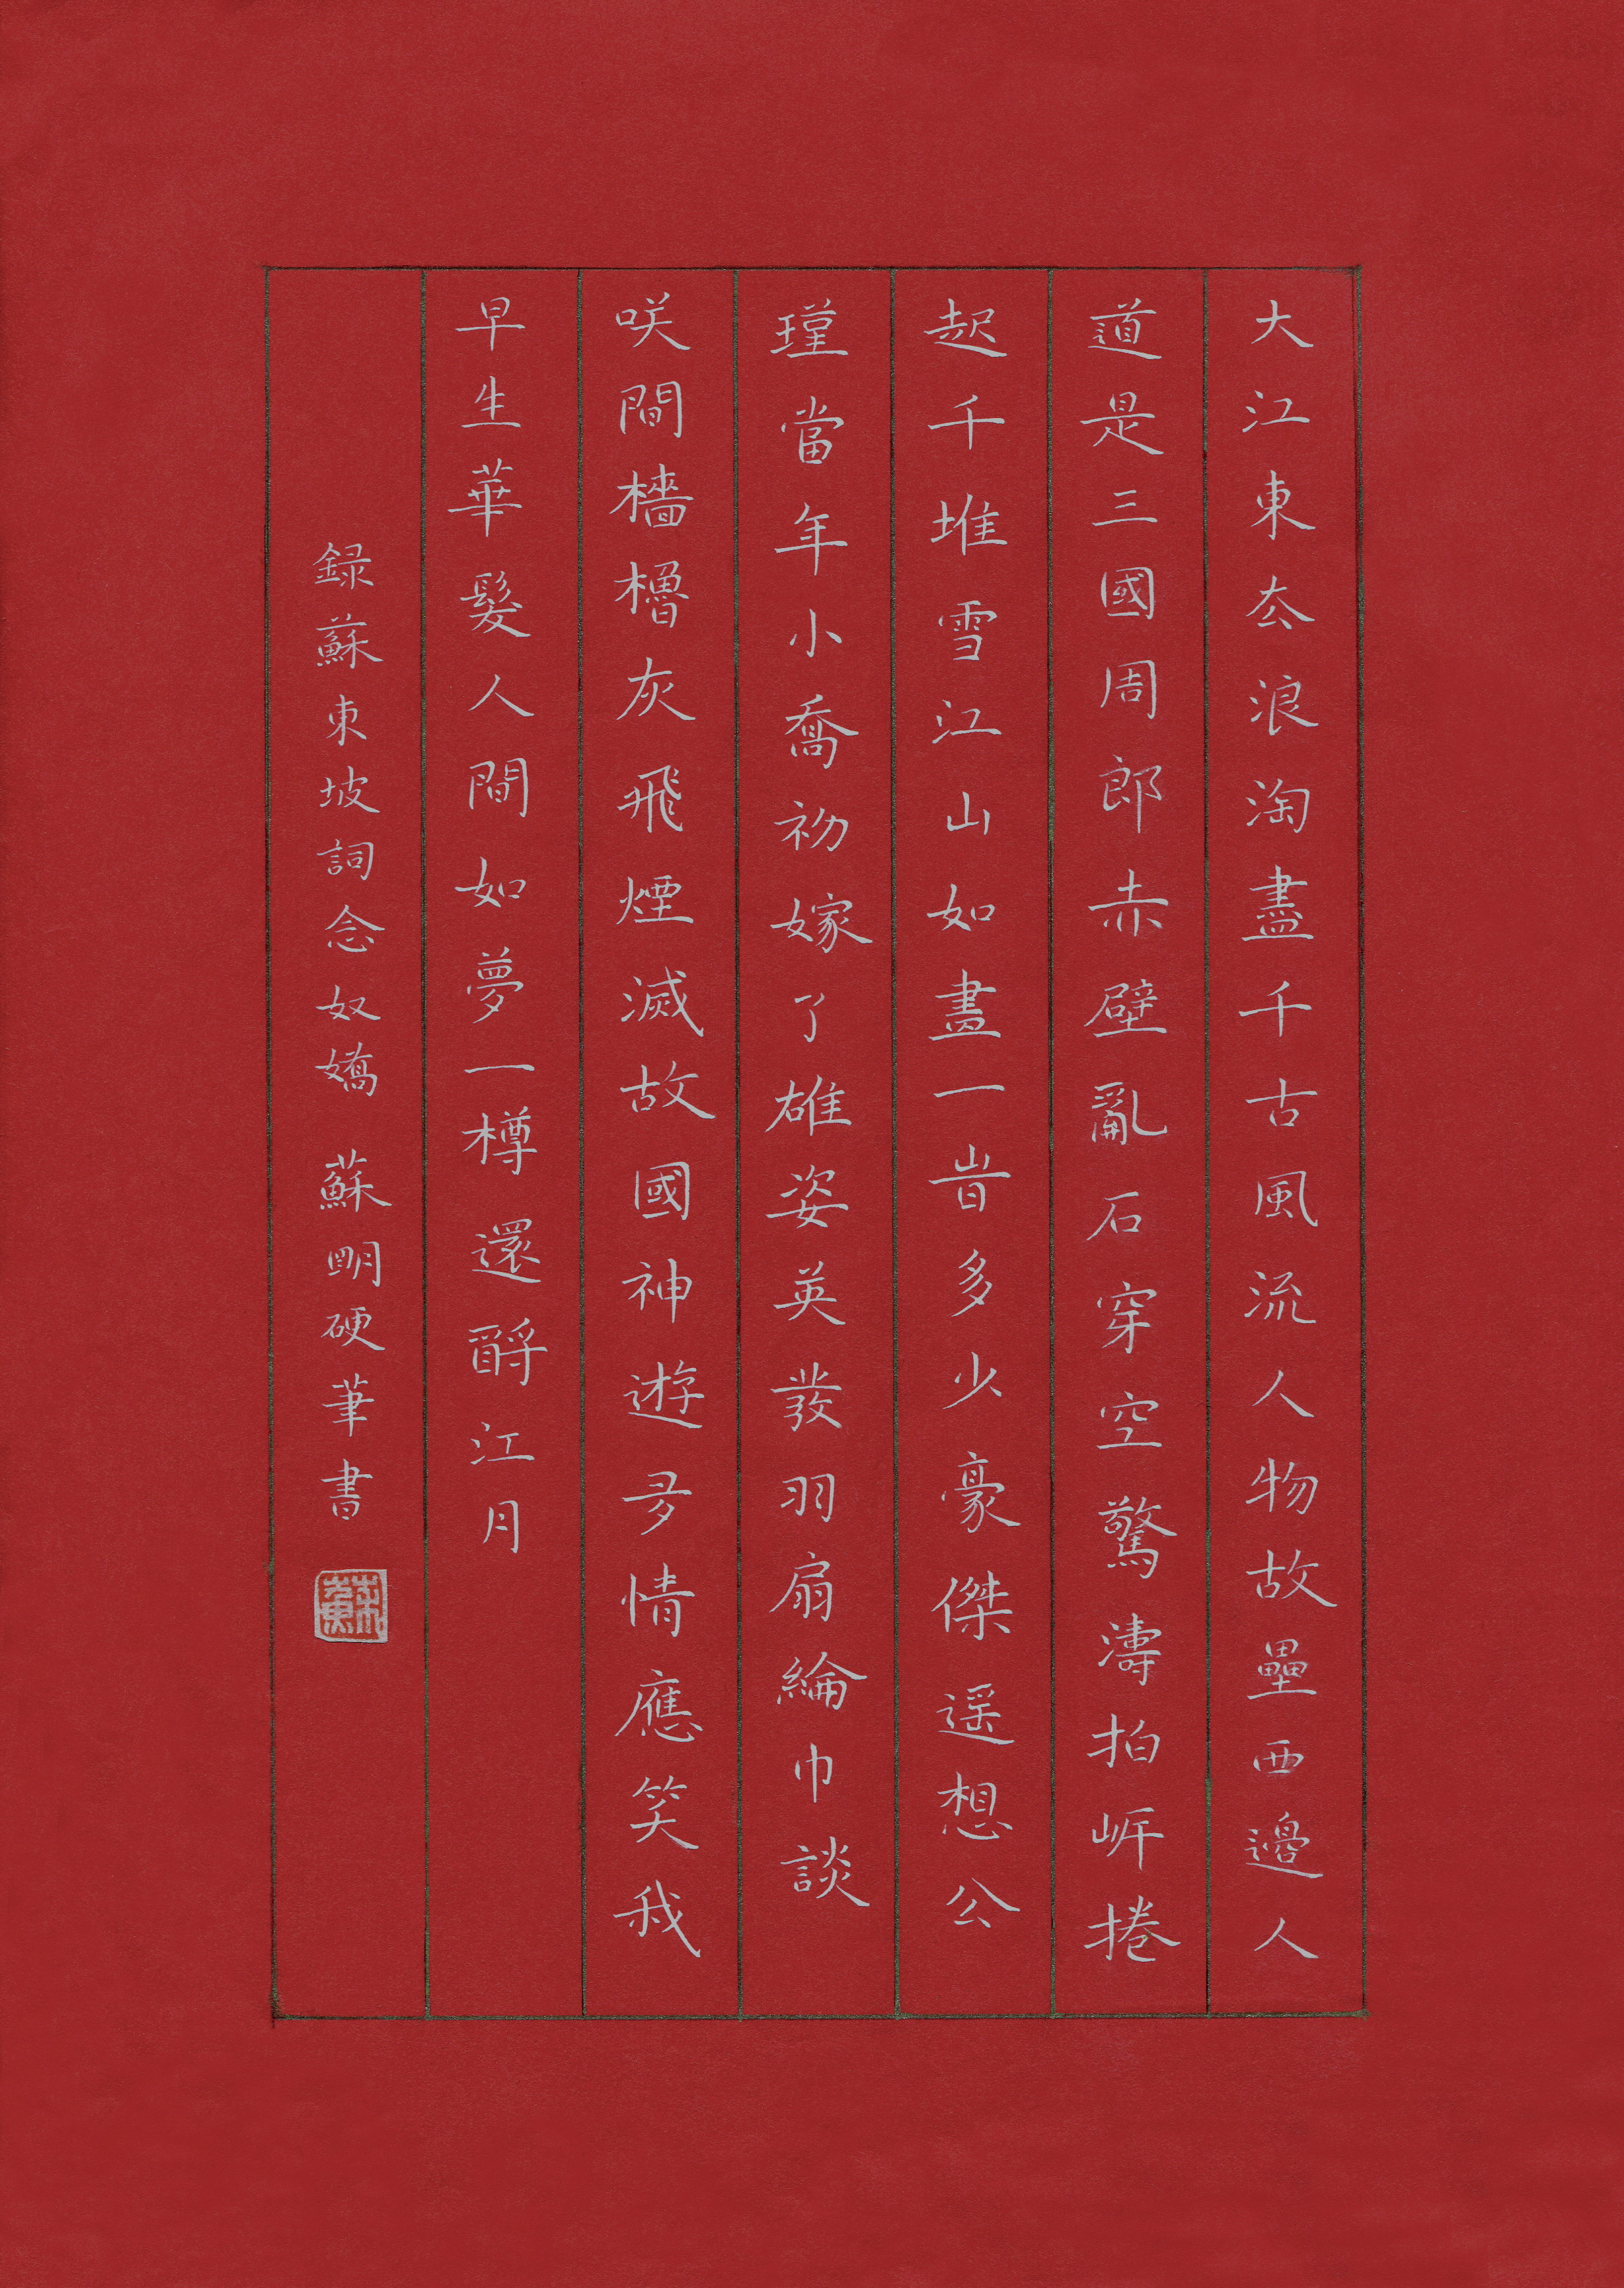 大江東厺浪淘盡千古風流人物故壘西邊人
道是三國周郎赤壁亂石穿空驚濤拍岸捲
起千堆雪江山如畫一旹多少豪傑遥想公
瑾當年小喬初嫁了雄姿英發羽扇綸巾談
咲間檣櫓灰飛煙滅故國神遊多情應笑我
早生華髮人間如夢一樽還酹江月
録蘇東坡詞念奴嬌 蘇明硬筆書
蘇